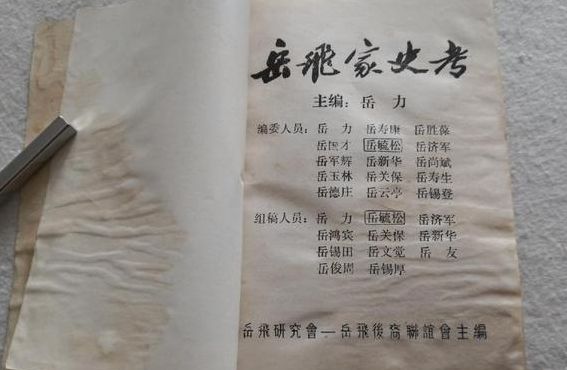 岳飛家史考
主编：岳 力
编委人员：岳 力 岳寿康 岳胜葆
岳国才 岳毓松 岳济军
岳军辉 岳新华 岳尚斌
岳玉林 岳关保 岳寿生
岳德庄 岳云亭 岳锡登
组稿人员：岳 力 岳毓松 岳济军
岳鸿宾 岳关保 岳新华
岳锡田 岳文觉 岳 友
岳俊周 岳锡厚
岳飛研究會—岳飛後裔聯誼會主編